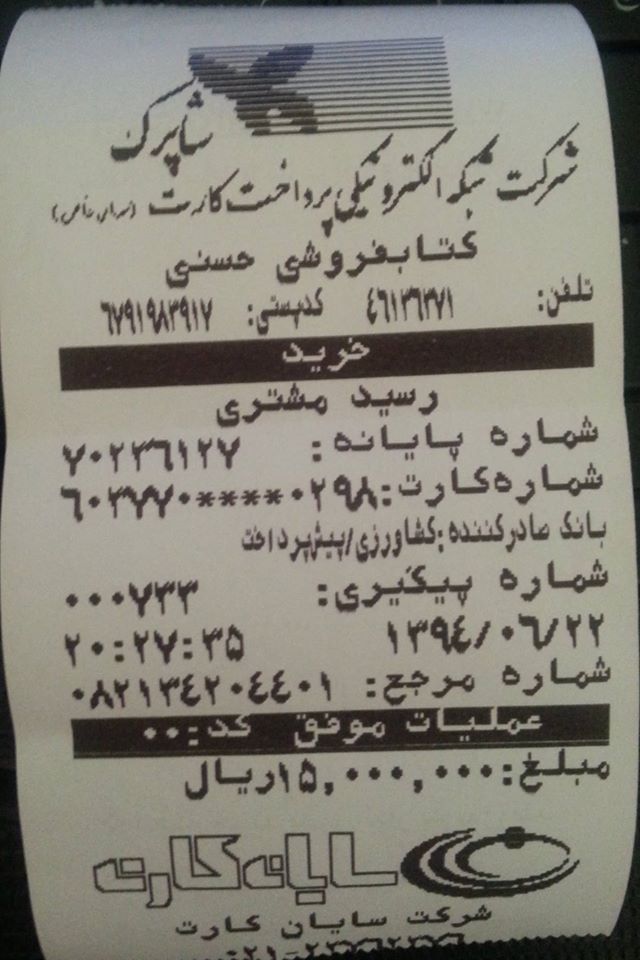 شاپرک
شرکت شبکه الکترونیکی پرداخت کارت (سهامی خاص)
کتابفروشی حسنی
تلفن: ۴۶۱۳۶۳۷۱ کدپستی: ۶۷۹۱۹۸۳۹۱۷
خرید
رسید مشتری
شماره پایانه: ۷۰۲۳۶۱۲۷
شماره کارت:۶۰۳۷۷۰****۰۲۹۸
بانک صادرکننده:کشاورزی/پیش‌پرداخت
شماره پیگیری: ۰۰۰۷۳۳
۱۳۹۴/۰۶/۲۲ ۲۰:۲۷:۳۵
شماره مرجع: ۰۸۲۱۳۴۲۰۴۴۰۱
عملیات موفق کد:۰۰
مبلغ:۱۵,۰۰۰,۰۰۰ریال
سایان کارت
شرکت سایان کارت